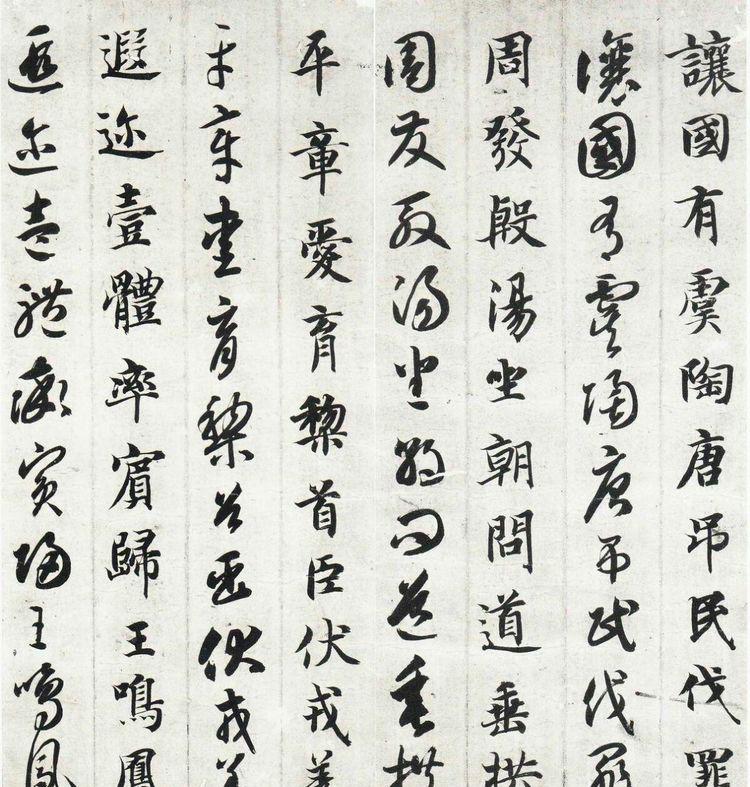 讓國有虞陶唐吊民伐罪
讓國有虞陶唐吊民伐罪
周發殷湯坐朝問道垂拱
周發殷湯坐朝問道垂拱
平章愛育黎首臣伏戎羌
平章愛育黎首臣伏戎羌
遐迩壹體率賓歸王鳴鳳
遐迩壹體率賓歸王鳴鳳